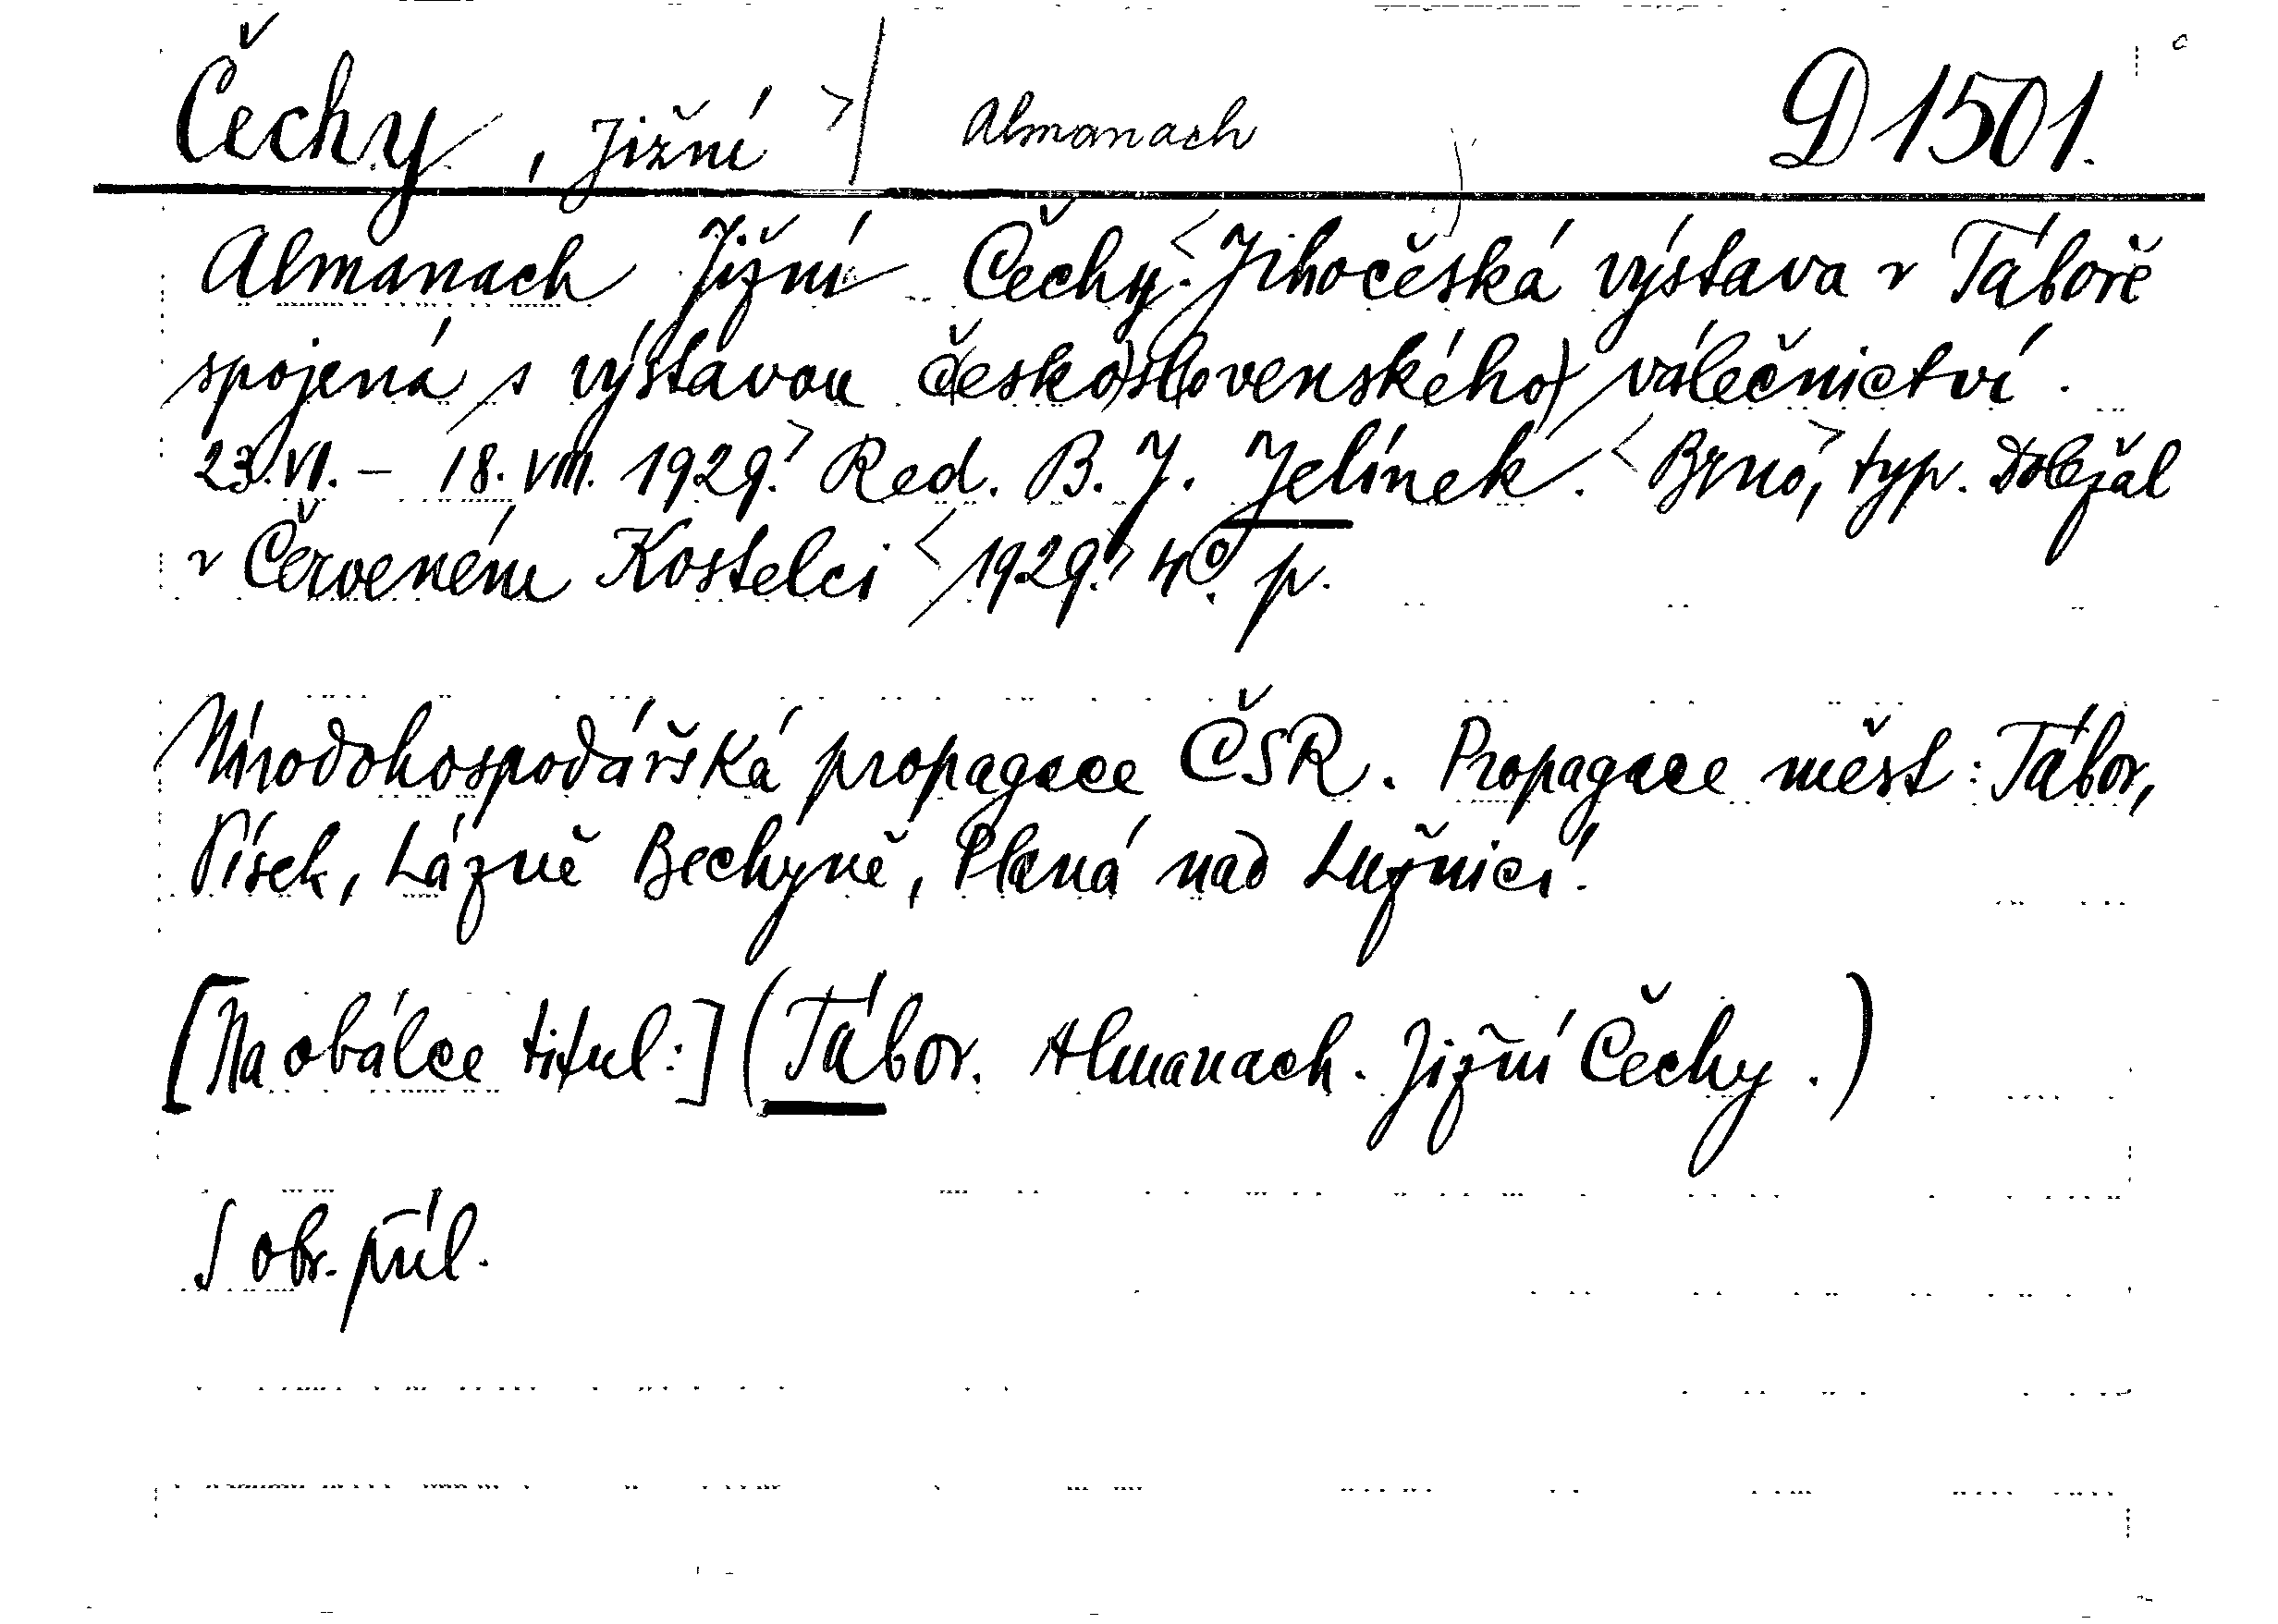 Čechy, Jižní >/ Almanach D 1501.
Almanach Jižní Čechy. < Jihočeská výstava v Táboře
spojená s výstavou česko)slovenského) válečnictví.
23.VI. – 18.VIII. 1929.> Red. B. J. Jelínek. < Brno,> typ. Doležal
v Červeném Kostelci < 1929.> 4°. p.
Národohospodářská propagace ČSR. Propagace měst: Tábor,
Písek, Lázně Bechyně, Planá nad Lužnicí.
[Na obálce titul:] (Tábor. Almanach. Jižní Čechy.)
S obr. příl.